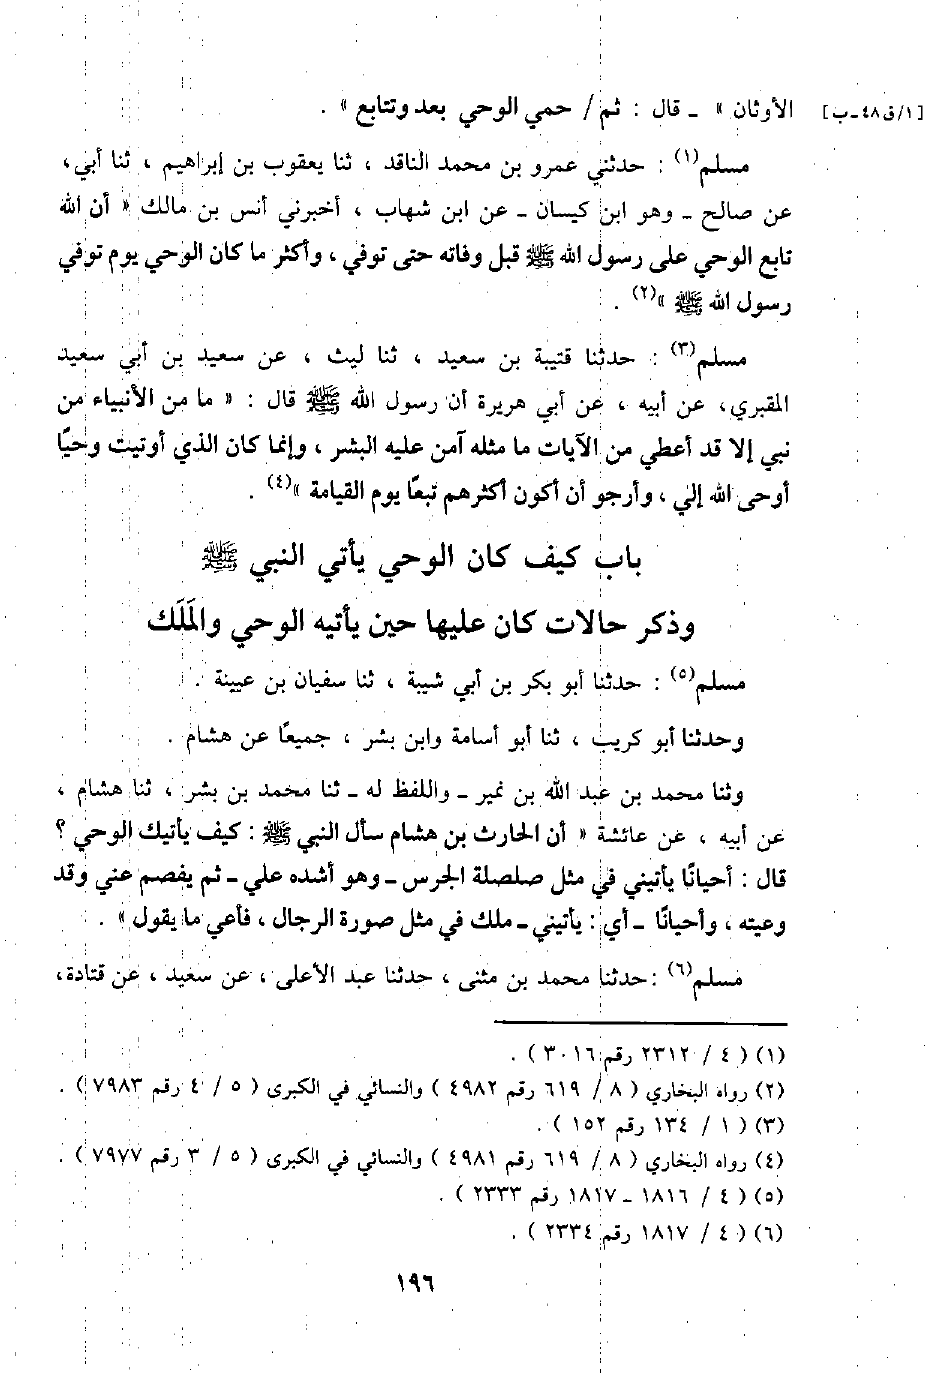 [١/ق٤٨-ب] الأوثان » - قال : ثم / حمي الوحي بعد وتتابع » .
مسلم(١) : حدثني عمرو بن محمد الناقد ، ثنا يعقوب بن إبراهيم ، ثنا أبي،
عن صالح - وهو ابن كيسان - عن ابن شهاب ، أخبرني أنس بن مالك « أن الله
تابع الوحي على رسول الله ﷺ قبل وفاته حتى توفي ، وأكثر ما كان الوحي يوم توفي
رسول الله ﷺ »(٢) .
مسلم(٣) : حدثنا قتيبة بن سعيد ، ثنا ليث ، عن سعيد بن أبي سعيد
المقبري، عن أبيه ، عن أبي هريرة أن رسول الله ﷺ قال : « ما من الأنبياء من
نبي إلا قد أعطي من الآيات ما مثله آمن عليه البشر ، وإنما كان الذي أوتيت وحيًا
أوحى الله إلي ، وأرجو أن أكون أكثرهم تبعًا يوم القيامة »(٤) .
باب كيف كان الوحي يأتي النبي ﷺ
وذكر حالات كان عليها حين يأتيه الوحي والمَلَك
مسلم(٥) : حدثنا أبو بكر بن أبي شيبة ، ثنا سفيان بن عيينة .
وحدثنا أبو كريب ، ثنا أبو أسامة وابن بشر ، جميعًا عن هشام .
وثنا محمد بن عبد الله بن نمير - واللفظ له - ثنا محمد بن بشر ، ثنا هشام ،
عن أبيه ، عن عائشة « أن الحارث بن هشام سأل النبي ﷺ : كيف يأتيك الوحي ؟
قال : أحيانًا يأتيني في مثل صلصلة الجرس - وهو أشده علي - ثم يفصم عني وقد
وعيته ، وأحيانًا - أي : يأتيني - ملك في مثل صورة الرجال ، فأعي ما يقول » .
مسلم(٦) : حدثنا محمد بن مثنى ، حدثنا عبد الأعلى ، عن سعيد ، عن قتادة،
(١) ( ٤ / ٢٣١٢ رقم ٣٠١٦ ) .
(٢) رواه البخاري ( ٨ / ٦١٩ رقم ٤٩٨٢ ) والنسائي في الكبرى ( ٥ / ٤ رقم ٧٩٨٣ ) .
(٣) ( ١ / ١٣٤ رقم ١٥٢ ) .
(٤) رواه البخاري ( ٨ / ٦١٩ رقم ٤٩٨١ ) والنسائي في الكبرى ( ٥ / ٣ رقم ٧٩٧٧ ) .
(٥) ( ٤ / ١٨١٦ - ١٨١٧ رقم ٢٣٣٣ ) .
(٦) ( ٤ / ١٨١٧ رقم ٢٣٣٤ ) .
١٩٦